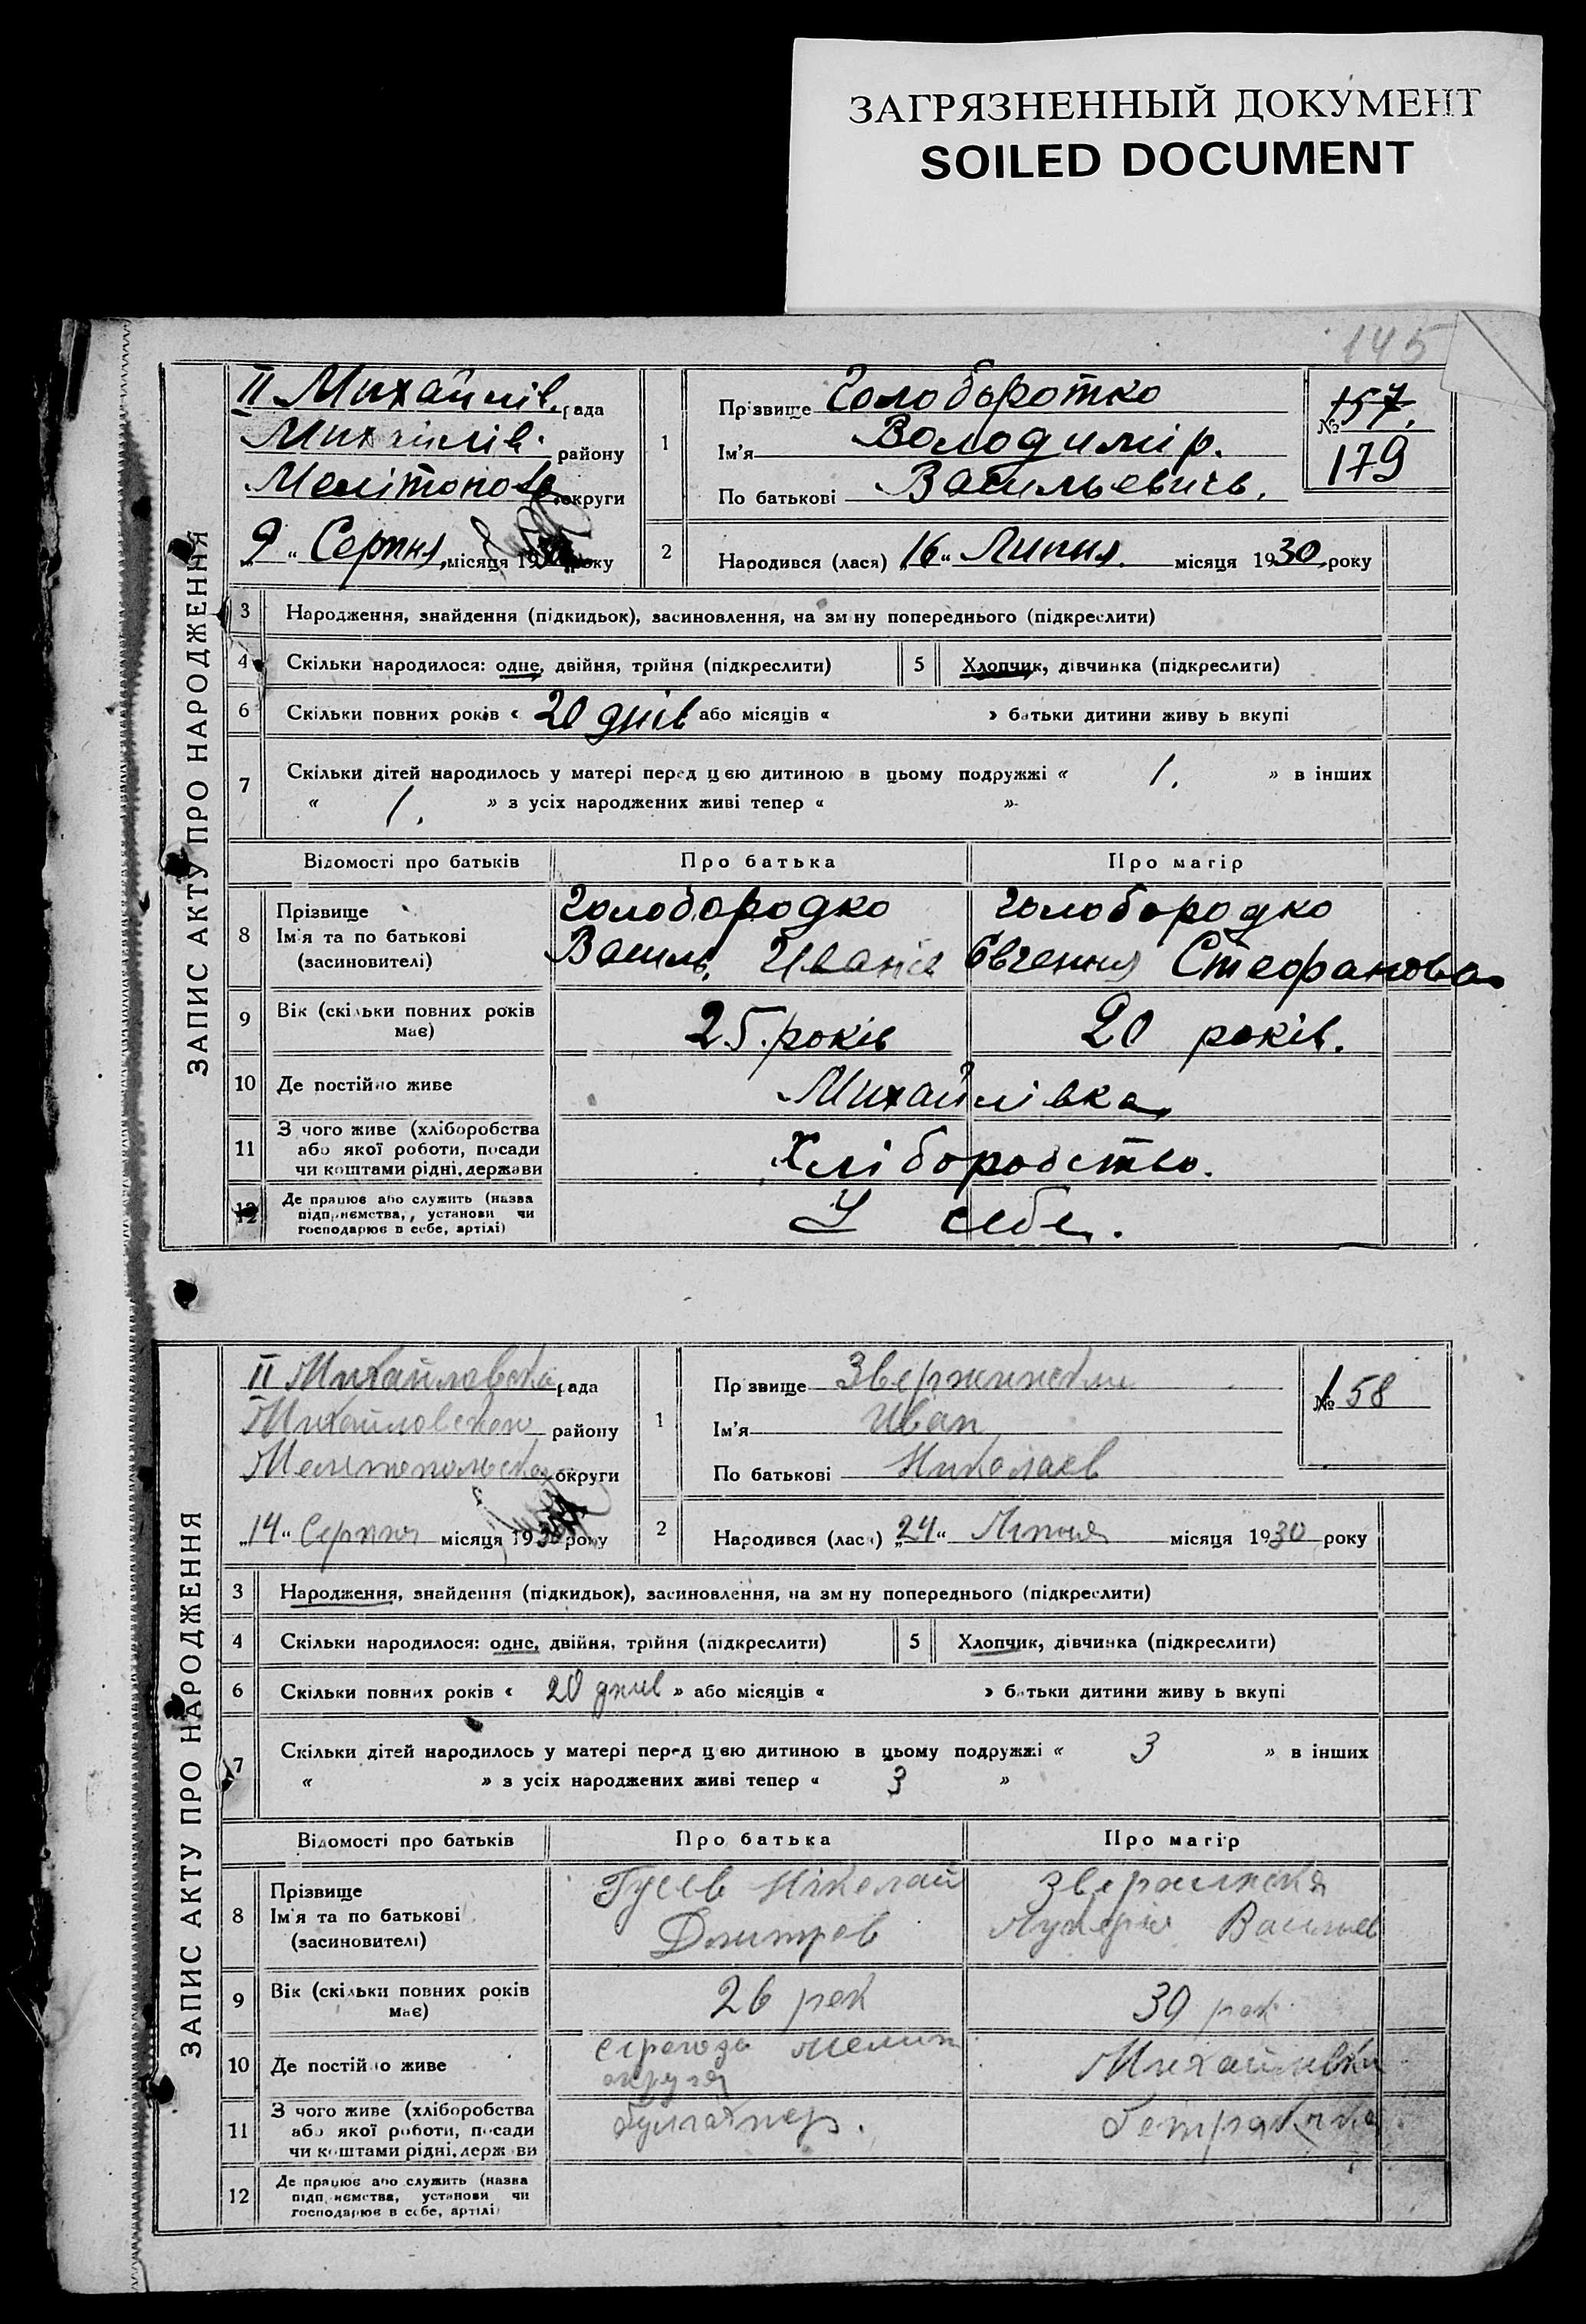 ЗАГРЯЗНЕННЫЙ ДОКУМЕНТ
SOILED DOCUMENT
145
ЗАПИС АКТУ ПРО НАРОДЖЕННЯ
II Михайлів. рада
Михайлів. району
Мелітопов. округи
„9“ Серпня, місяця 19 року
1
Прізвище Голоборотко
Ім'я Володимір.
По батькові Васильевичь.
№ 157.
179
2
Народився (лася) „16“ Липня. місяця 1930 року
3 Народження, знайдення (підкидьок), засиновлення, на зм ну попереднього (підкреслити)
4 Скільки народилося: одне, двійня, трійня (підкреслити) 5 Хлопчик, дівчинка (підкреслити)
6 Скільки повних років « 20 днів або місяців « » батьки дитини живу ь вкупі
7 Скільки дітей народилось у матері перед цією дитиною в цьому подружжі « 1. » в інших
« 1. » з усіх народжених живі тепер « »
Відомості про батьків Про батька Про матір
8 Прізвище
Ім'я та по батькові
(засиновителі)
Голобородко
Василь. Иванів
Голобородко
Євгения Стефанова
9 Вік (скільки повних років має) 25. років 20 років.
10 Де постійно живе Михайлівка
11 З чого живе (хліборобства
або якої роботи, посади
чи коштами рідні, держави
Хліборобство.
12 Де працює або служить (назва
підприємства, установи чи
господарює в себе, артілі)
У себе.
ЗАПИС АКТУ ПРО НАРОДЖЕННЯ
II Михайловська рада
Михайловского району
Мелитопольской округи
„14“ Серпня місяця 1930 року
1
Пр звище Звержинский
Ім'я Иван
По батькові Николаев
№ 158
2
Народився (лася) „24“ Липня місяця 1930 року
3 Народження, знайдення (підкидьок), засиновлення, на зм ну попереднього (підкреслити)
4 Скільки народилося: одне, двійня, трійня (підкреслити) 5 Хлопчик, дівчинка (підкреслити)
6 Скільки повних років « 20 днив » або місяців « » батьки дитини живу ь вкупі
7 Скільки дітей народилось у матері перед цією дитиною в цьому подружжі « 3 » в інших
« » з усіх народжених живі тепер « 3 »
Відомості про батьків Про батька Про матір
8 Прізвище
Ім'я та по батькові
(засиновителі)
Гусев Ніколай
Дмитров
Василев
9 Вік (скільки повних років має) 26 рок 30 рок
10 Де постійно живе
округа
Михайлівка
11 З чого живе (хліборобства
або якої роботи, посади
чи коштами рідні, держ ви
бухгалтер.
12 Де працює або служить (назва
підприємства, установи чи
господарює в себе, артілі